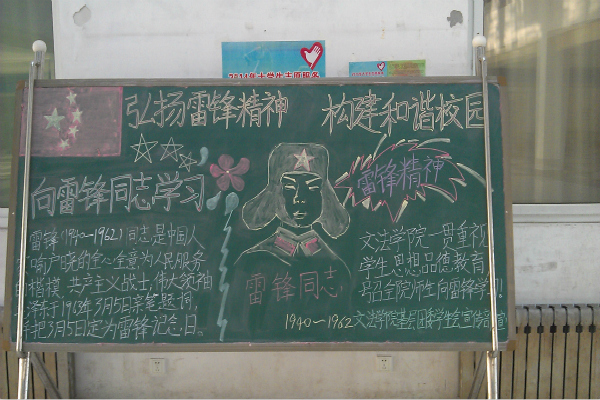 2011年大学生志愿服务
弘扬雷锋精神 构建和谐校园
向雷锋同志学习
雷锋精神
雷锋(1940~1962)同志是中国人
喻户晓的全心全意为人民服务
楷模、共产主义战士,伟大领袖
泽东于1963年3月5日亲笔题词,
并把3月5日定为雷锋纪念日。
雷锋同志
1940~1962
文法学院一贯重视
学生思想品德教育
号召全院师生向雷锋学习!
文法学院基层团委学生会宣传部宣